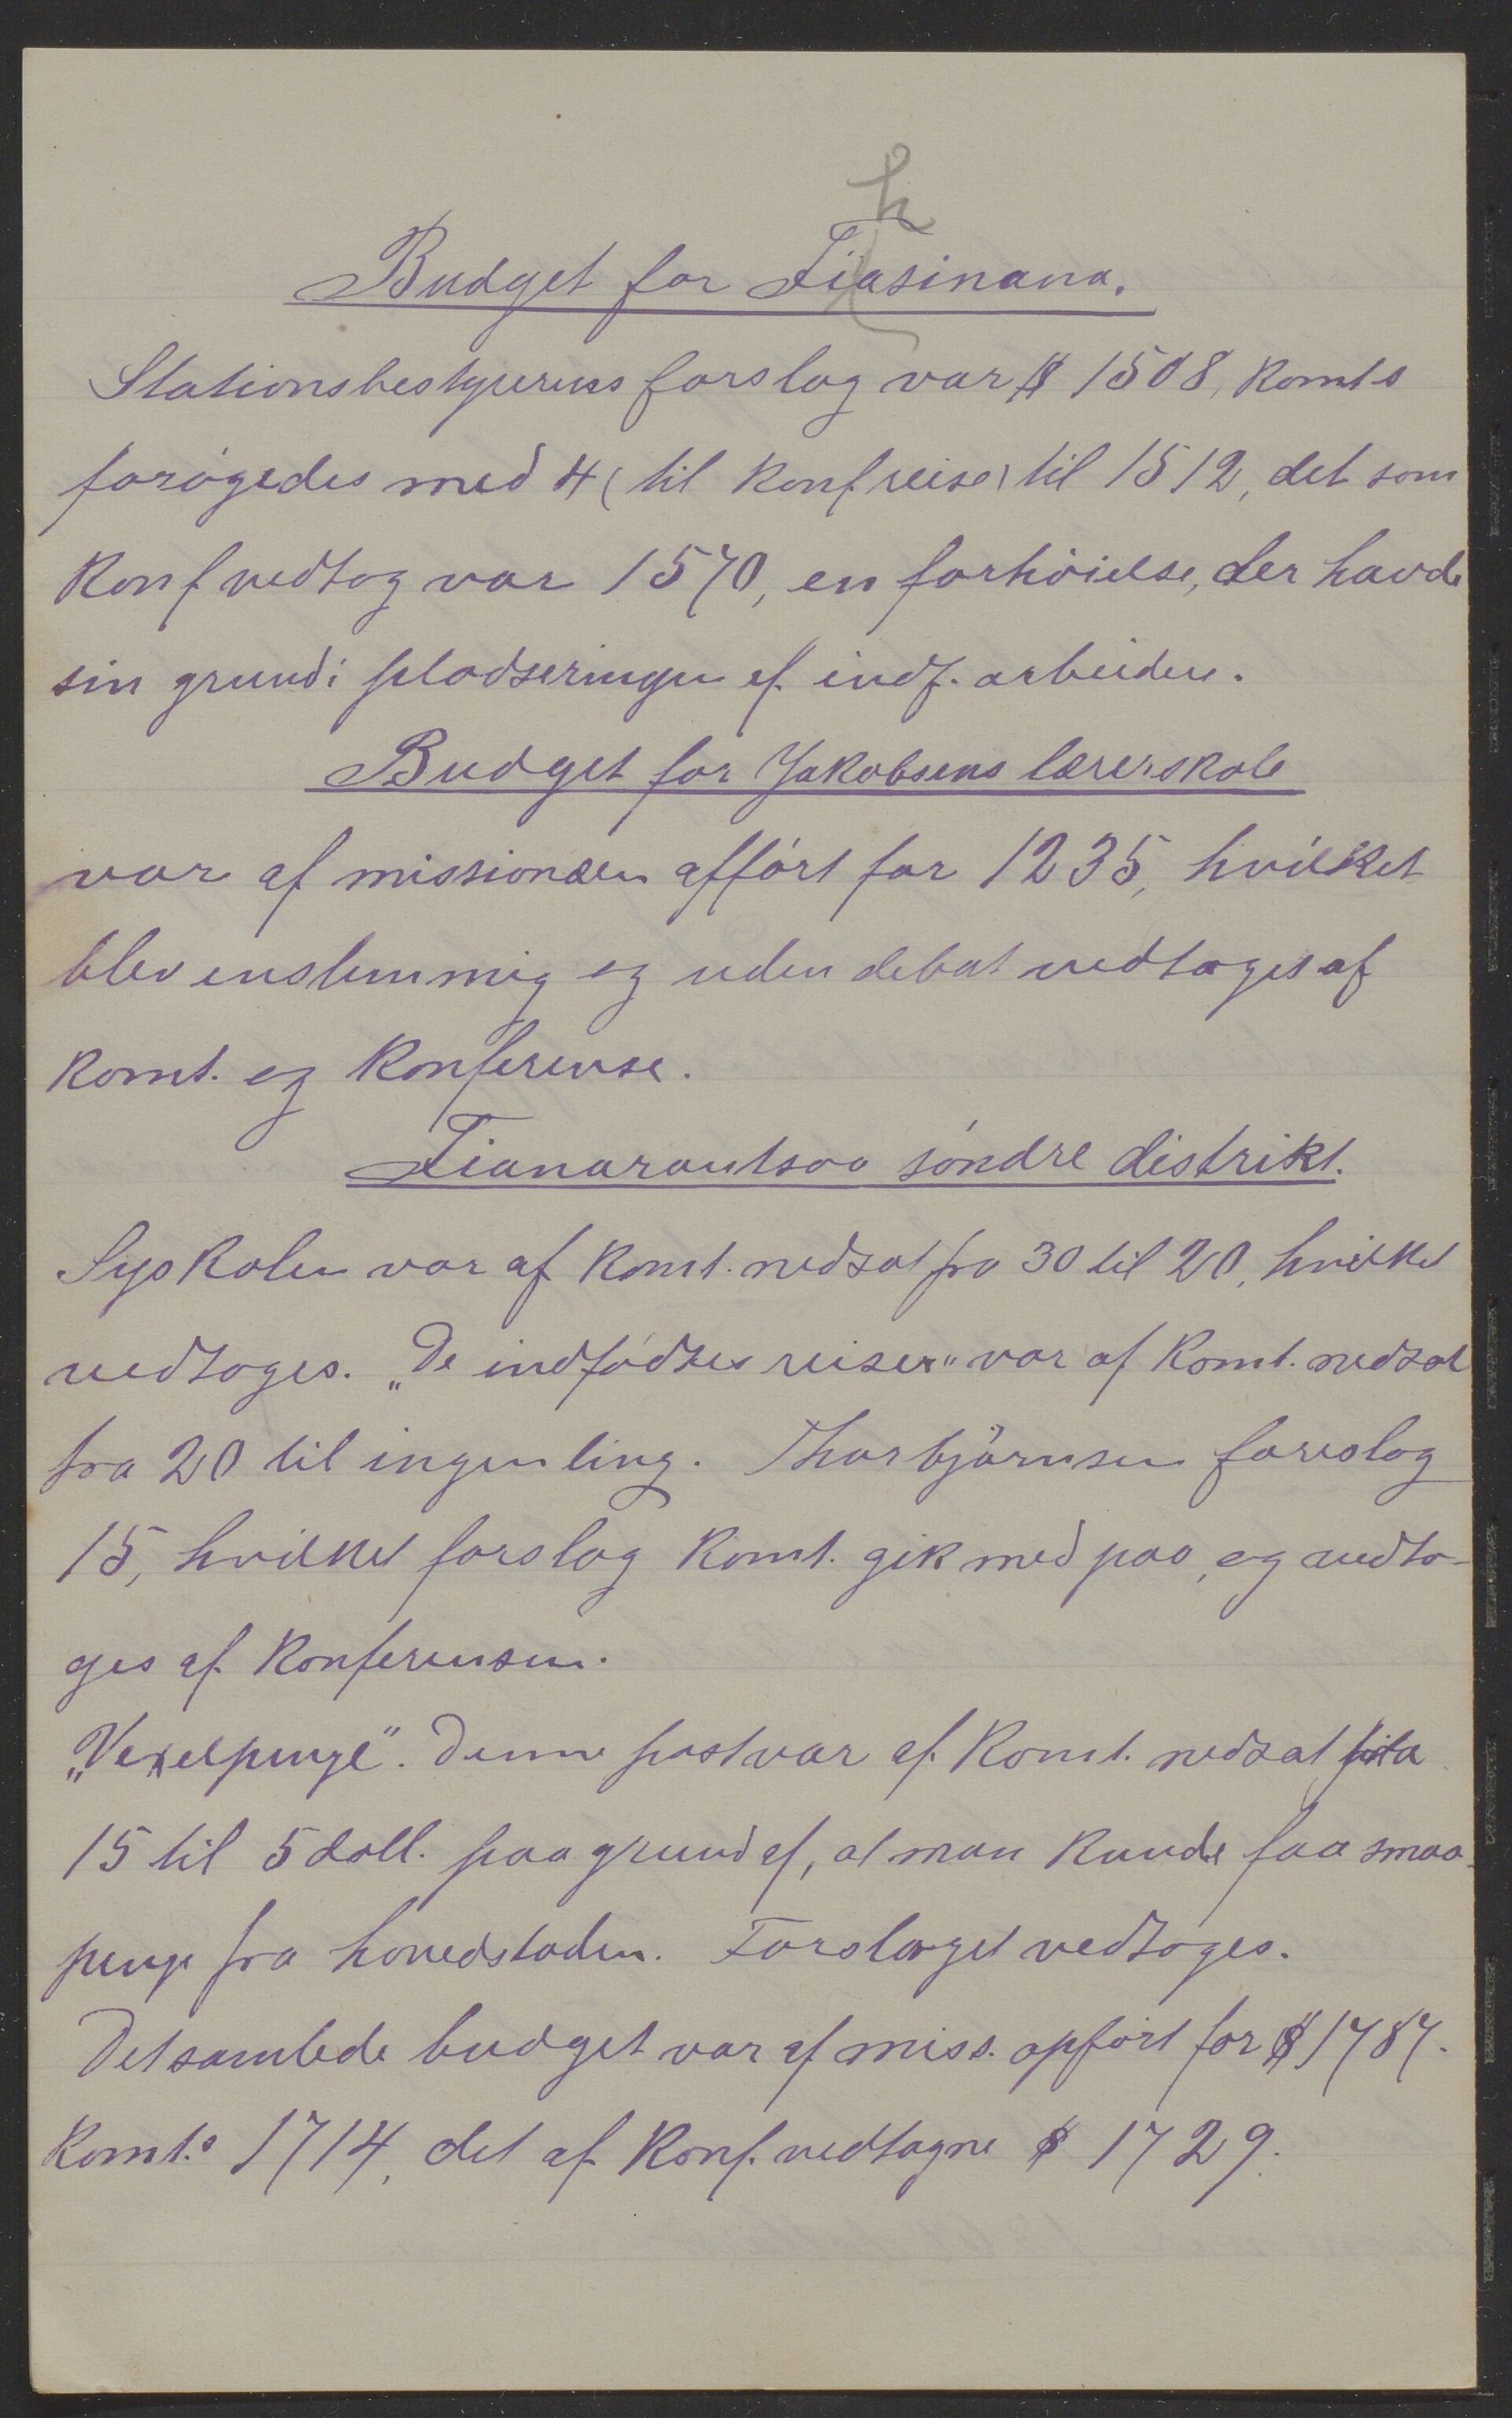 h
Budget for Fiasinana.
Stationsbestyrerens forslag var $ 1508, komts
forøgedes med 4 (til konfreise) til 1512, det som
konf vedtog var 1570, en forhøielse, der havde
sin grund i pladseringen af indf. arbeidere.
Budget for Jakobsens lærerskole
var af missionæren opført for 1235, hvilket
blev enstemmig og uden debat vedtaget af
komt. og konferense.
Fianarantsoa søndre distrikt.
Syskolen var af komt. nedsat fra 30 til 20, hvilket
vedtoges. „De indfødtes reiser" var af komt. nedsat
fra 20 til ingenting. Thorbjørnsen foreslog
15, hvilket forslag komt. gik med paa, og vedto-
ges af konferensen.
„Vexelpenge". Denne post var af komt. nedsat fra
15 til 5 doll. paa grund af, at man kunde faa smaa-
penge fra hovedstaden. Forslaget vedtoges.
Det samlede budget var af miss. opført for $ 1787.
Komt.s 1714, det af konf. vedtagne $ 1729.